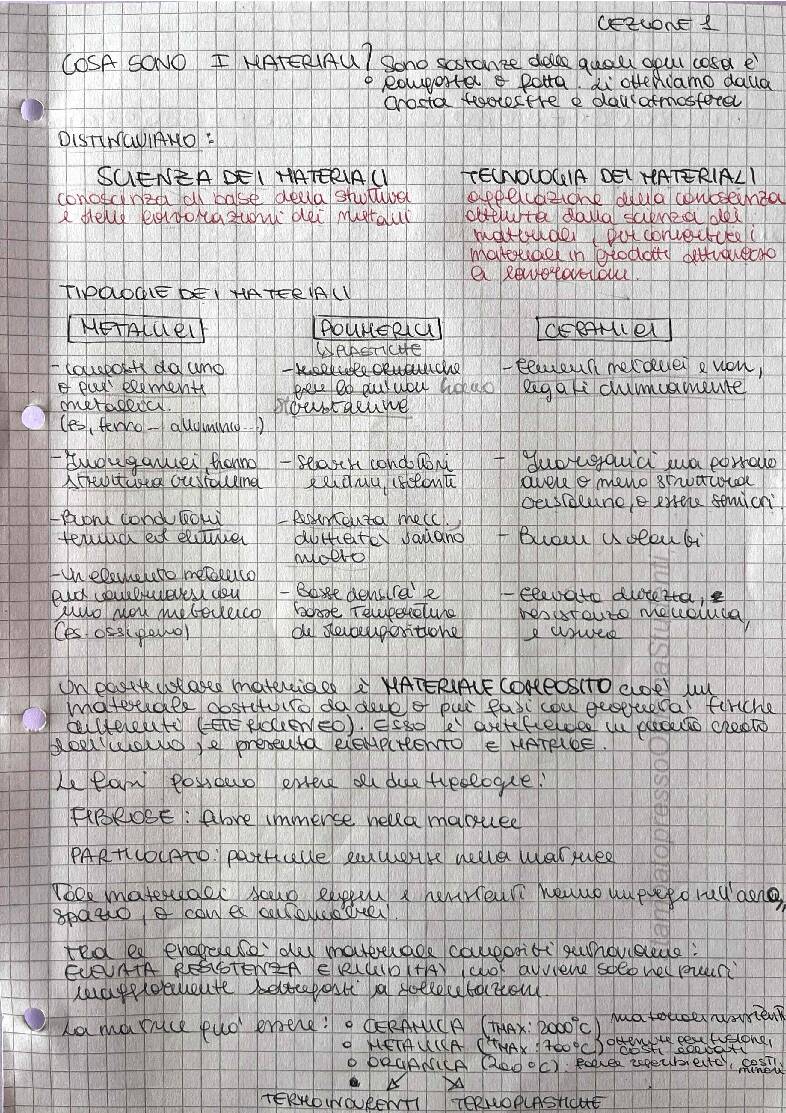 LEZIONE 1
COSA SONO I MATERIALI? Sono sostanze delle quali ogni cosa è
composta o fatta. Li otteniamo dalla
crosta terrestre e dall'atmosfera
DISTINGUIAMO:
SCIENZA DEI MATERIALI
conoscenza di base della struttura
e delle lavorazioni dei metalli
TECNOLOGIA DEI MATERIALI
applicazione della conoscenza
ottenuta dalla scienza dei
materiali, per convertire i
materiale in prodotti attraverso
le lavorazioni.
TIPOLOGIE DEI MATERIALI
METALLICI
- Composti da uno
o più elementi
metallici.
(es, ferro - alluminio...)
- Inorganici, hanno
struttura cristallina
- Buoni conduttori
termici ed elettrici
- Un elemento metallico
può combinarsi con
uno non metallico
(es. ossigeno)
POLIMERICI
↳PLASTICHE
- Molecole organiche
per lo più non hanno
cristalline
- Scarsi conduttori
elettrici, isolanti
- Resistenza mecc.,
duttilità variano
molto
- Basse densità e
basse temperature
di decomposizione
CERAMICI
- Elementi metallici e non,
legati chimicamente
- Inorganici ma possono
avere o meno struttura
cristallina, o essere semicri.
- Buoni isolanti
- Elevata durezza,
resistenza meccanica,
e usura
Un particolare materiale è MATERIALE COMPOSITO cioè un
materiale costituito da due o più fasi con proprietà fisiche
differenti (ETEROGENEO). ESSO è artificiale in quanto creato
dall'uomo, e presenta RIEMPIMENTO E MATRICE.
Le fasi possono essere di due tipologie:
FIBROSE: fibre immerse nella matrice
PARTICOLATO: particelle immerse nella matrice
Tale materiali sono leggeri e resistenti hanno impiego nell'aero,
spazio, o con le automobili.
Tra le proprietà dei materiale compositi ritroviamo:
ELEVATA RESISTENZA E RIGIDITÀ, ciò avviene solo nei punti
maggiormente sottoposti a sollecitazioni.
La matrice può essere: o CERAMICA (TMAX: 2000°C) materiali resistenti
o METALLICA (TMAX: 700°C) ottenute per fusione, costi elevati
o ORGANICA (200°C): poca reperibilità, costi minori
TERMOINDURENTI TERMOPLASTICHE